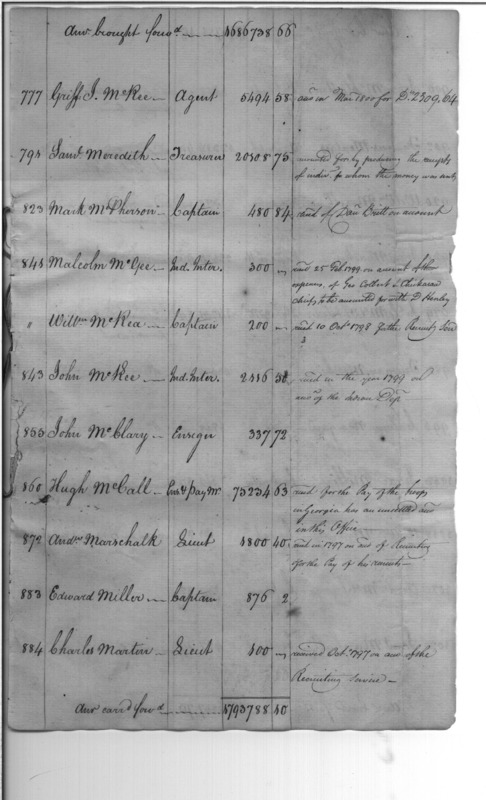 Amt. brought forwd. 1686738 66
777 Griff. J. McKee Agent 5494 58
in Mar. 1800 for Ds. 2309,64
794 Saml. Meredith Treasurer 20308 75 accounted for by producing the receipts
of whom the money was sent
823 Mark McPherson Captain 480 84 of Danl. Britt on account
Malcolm McGee Ind. Inter. 300 25 Feb 1799 on account of the
expences of Geo Colbert a Chickasaw
chief, to be accounted for with D Henley
" Willm. McRea Captain 200 10 Octr. 1798 for the Recruitg Serv
843 John McKee Ind. Inter. 2416 in the year 1799 on
of the Indian Dept
853 John McClary Ensign 337 72
860 Hugh McCall Ens. & Pay Mr. 75234 63 for the Pay of the troops
in Georgia has an unsettled
in this Office
872 Andw. Marschalk Lieut 1800 40 in 1797 on of Recruiting
for the Pay of his recruits
883 Edward Miller Captain 876 2
884 Charles Martin Lieut 100 received Octr. 1797 on acc of the
Recruiting Service
Amt. carrd. forwd. 1793788 40